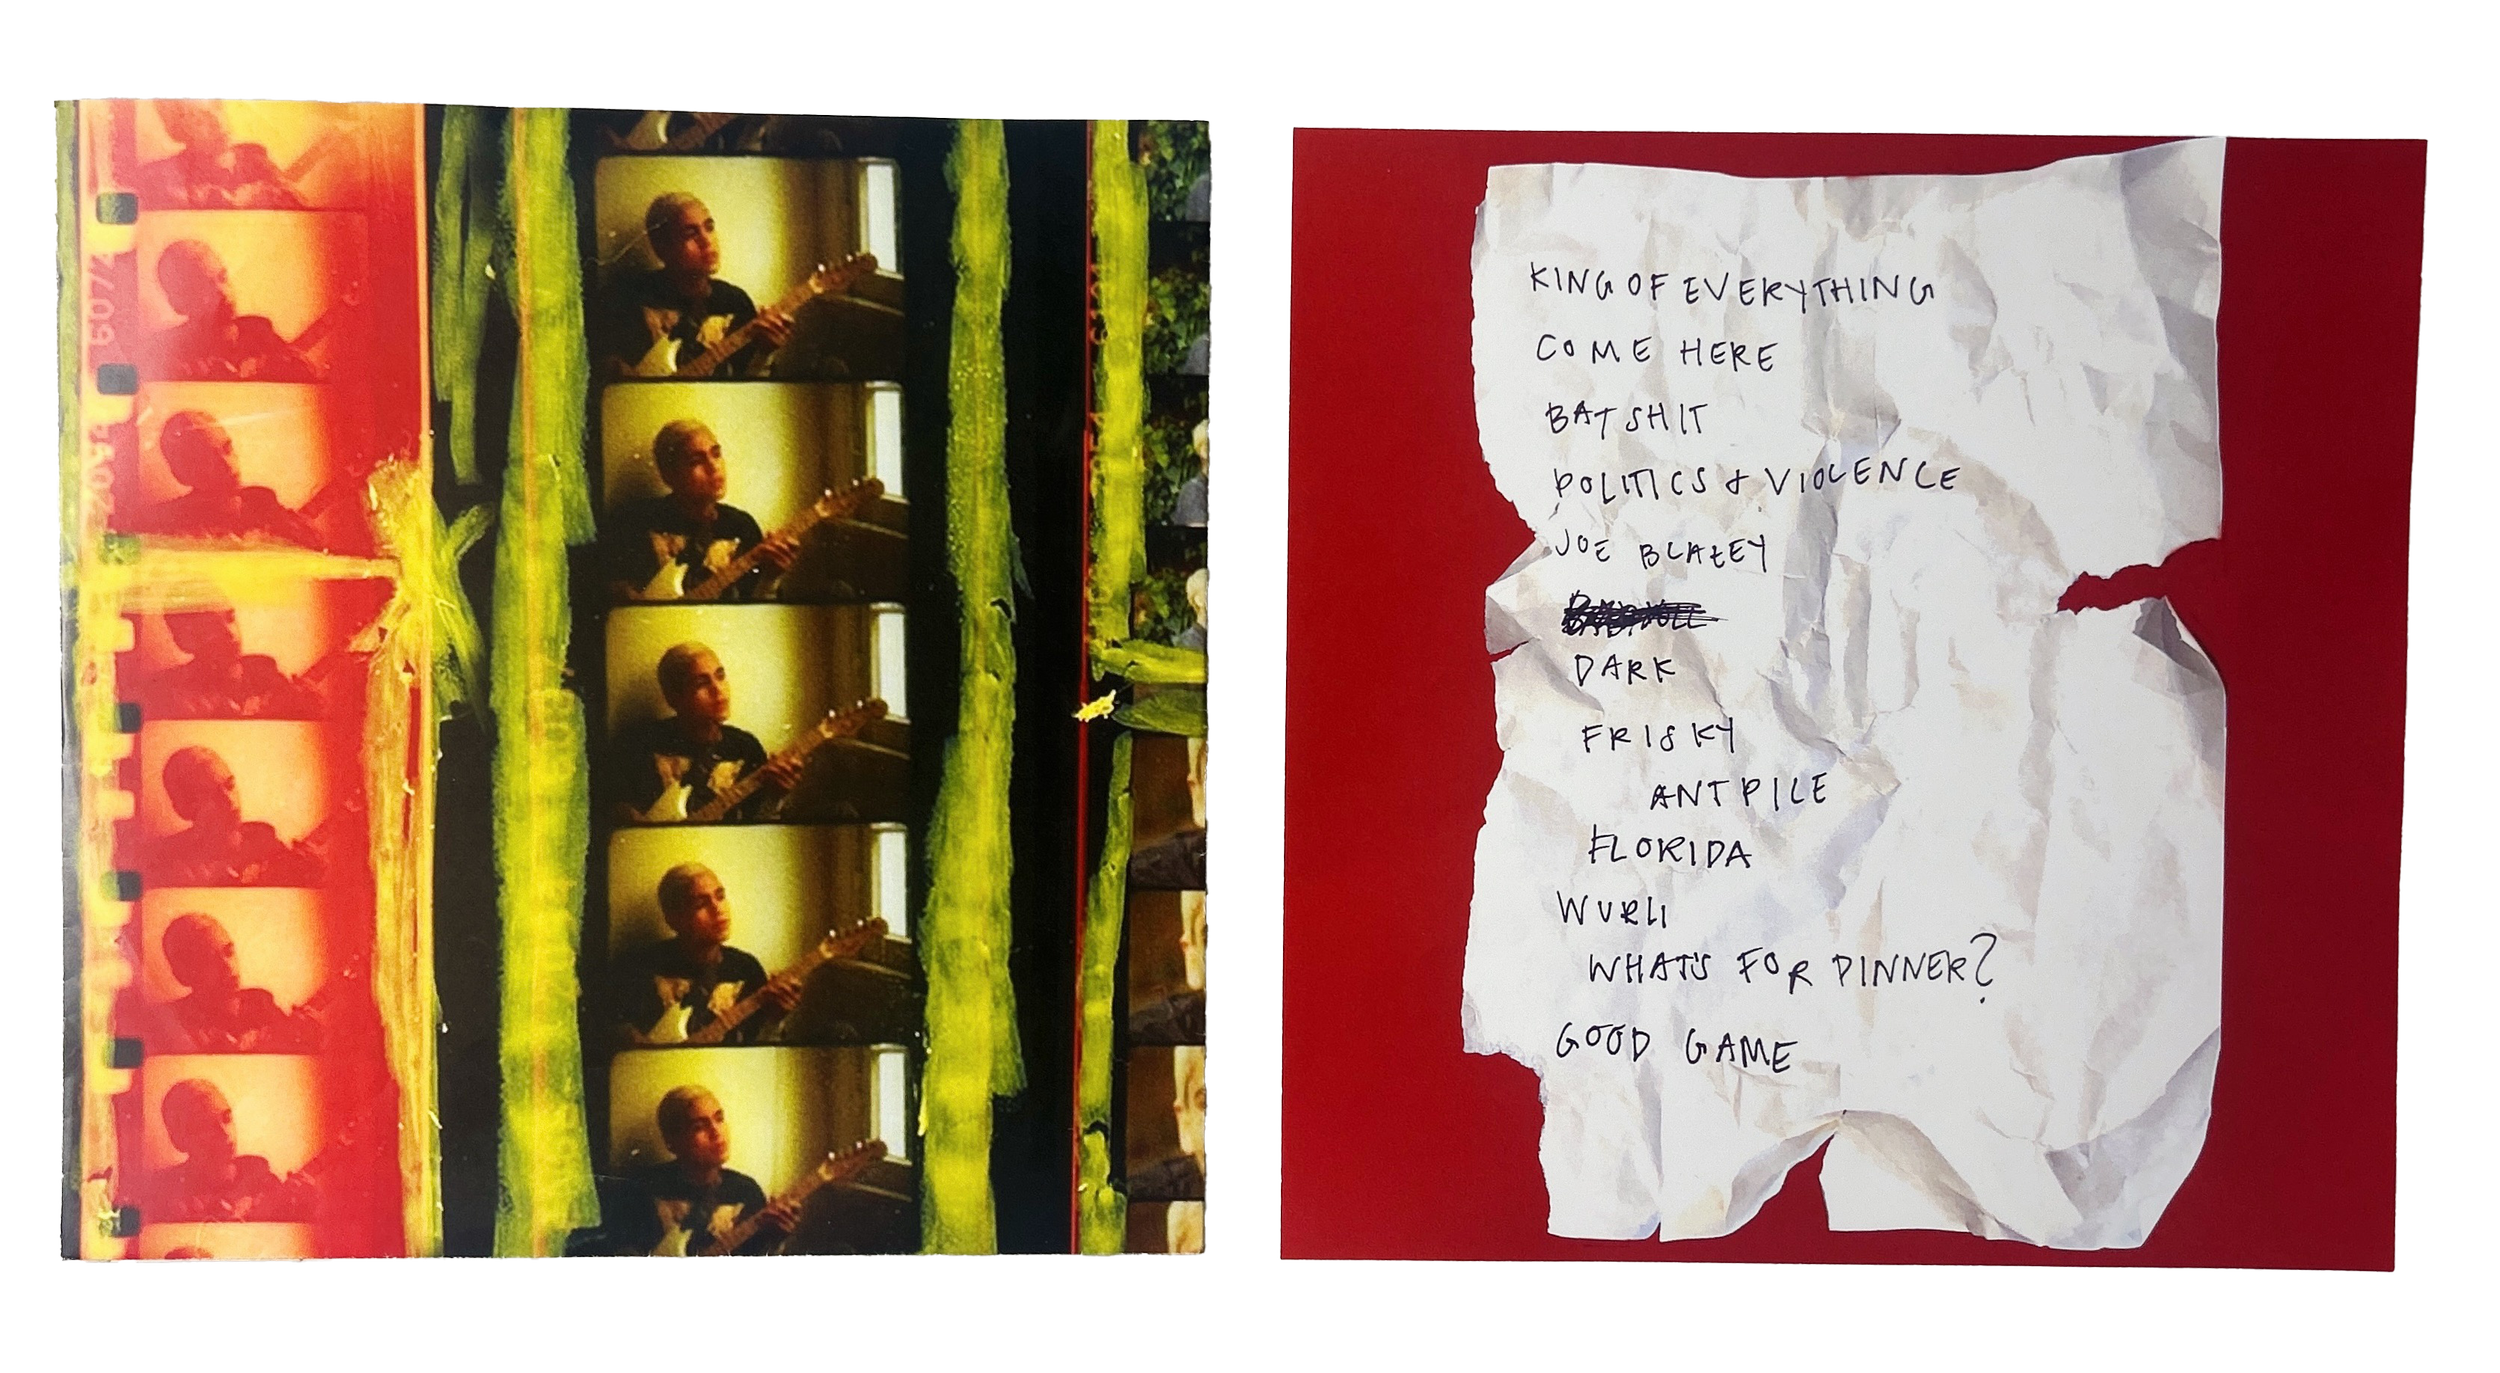 KING OF EVERYTHING
COME HERE
BATSHIT
POLITICS & VIOLENCE
JOE BLAZEY
DARK
FRISKY
ANTPILE
FLORIDA
WURLI
WHAT'S FOR DINNER?
GOOD GAME